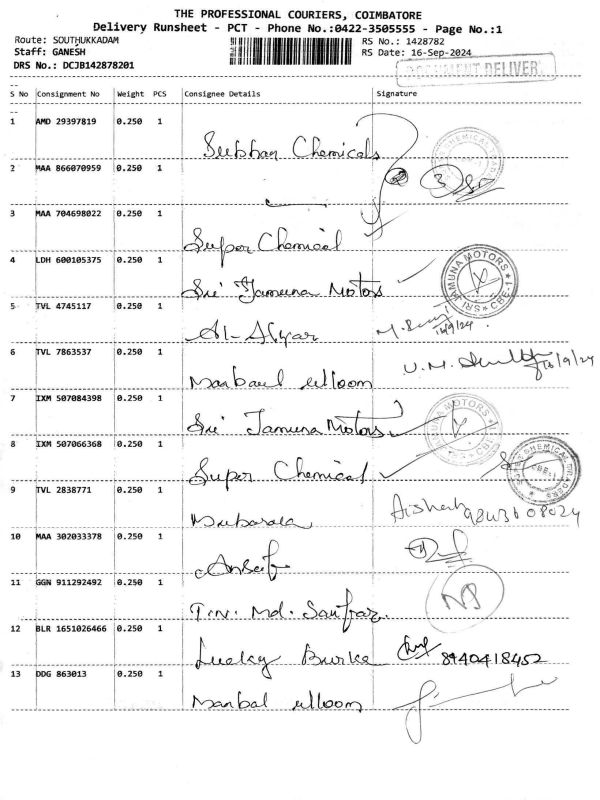 THE PROFESSIONAL COURIERS, COIMBATORE
Delivery Runsheet - PCT - Phone No.:0422-3505555 - Page No.:1
Route: SOUTHUKKADAM RS No.: 1428782
Staff: GANESH RS Date: 16-Sep-2024
DRS No.: DCJB142878201
DOCUMENT DELIVER
S No Consignment No Weight PCS Consignee Details Signature
1 AMD 29397819 0.250 1 Subhan Chemicals
2 MAA 866070959 0.250 1 3
3 MAA 704698022 0.250 1 Super Chemical
4 LDH 600105375 0.250 1 Sri Jamuna Motors SRI JAMUNA MOTORS CBE-1
5 TVL 4745117 0.250 1 16/9/24
6 TVL 7863537 0.250 1 16/9/24
7 IXM 507084398 0.250 1 Sri Jamuna Motors JAMUNA MOTORS CBE-1
8 IXM 507066368 0.250 1 Super Chemical CHEMICAL TRADERS CBE-1
9 TVL 2838771 0.250 1 Mubarak
10 MAA 302033378 0.250 1
11 GGN 911292492 0.250 1 T.N. Md.
12 BLR 1651026466 0.250 1 Lucky 8940418452
13 DDG 863013 0.250 1